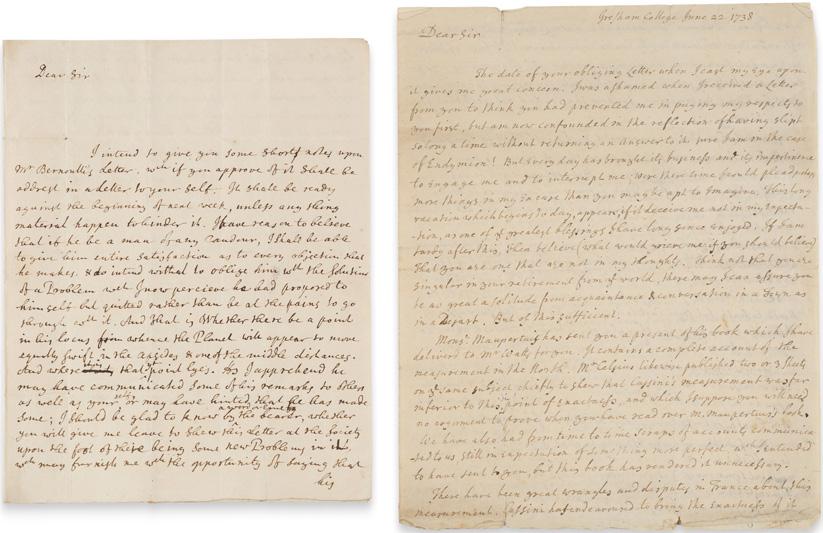 Dear Sir
I intend to give you some short notes upon
Mr Bernoulli's Letter. wch if you approve of it shall be
addrest in a Letter to your self. It shall be ready
against the beginning of next week, unless any thing
material happen to hinder it. I have reason to believe
that if he be a man of any Candour, I shall be able
to give him entire satisfaction as to every objection that
he makes. & do intend withal to oblige him wth the Solution
of a Problem wch I now percieve he had proposed to
himself but quitted rather than be at the pains to go
through wth it. And that is Whether there be a point
in his locus from whence the Planet will appear to move
equally swift in the apsides & one of the middle distances.
And where that point lyes. As I apprehend he
may have communicated some of his remarks to others
as well as your self or may have hinted that he has made
some; I should be glad to know by the bearer, whether
you will give me leave to shew this Letter at the Society
upon the foot of there being some new Problems in it,
wch may furnish me wth the opportunity of saying that
his
Gresham College June 22 1738
Dear Sir
The date of your obliging Letter when I cast my Eye upon
it gives me great concern. I was ashamed when I received a Letter
from you to think you had prevented me in paying my respects to
you first, but am now confounded in the reflection of having slept
so long a time without returning an answer to it. sure I am in the case
of Endymion! But every day has brought its business and its impertinence
to engage me and to interrupt me; were there time I could plead
more things in my Excuse than you may be apt to imagine. This long
vacation which begins to day, appears, if it deceive me not in my expecta-
tion, as one of ye greatest blessings I have long since enjoyed. If I am
tardy after this, then believe (what would grieve me if you should believe)
that you are one that are not in my thoughts. Think not that you are
singular in your retirement from ye world, there may I can assure you
be as great a solitude from acquaintance & conversation in a Town as
in a Desart. But of this sufficient.
Monsr Maupertuis has sent you a present of his book which I have
delivered to Mr Watts for you. It contains a complete account of the
measurement in the North. Mr Celsius likewise published two or 3 sheets
on ye same subject chiefly to show that Cassini's measurement was far
inferior to this point of exactness, and which I suppose you will need
no argument to prove when you have read over M. Maupertuis's book.
We have also had from time to time scraps of accounts communica-
ted to us still in expectation of something more perfect, wch I intended
to have sent to you, but this book has rendered it unnecessary.
There have been great wrangles and disputes in France about this
measurement. Cassini has endeavoured to bring the exactness of it